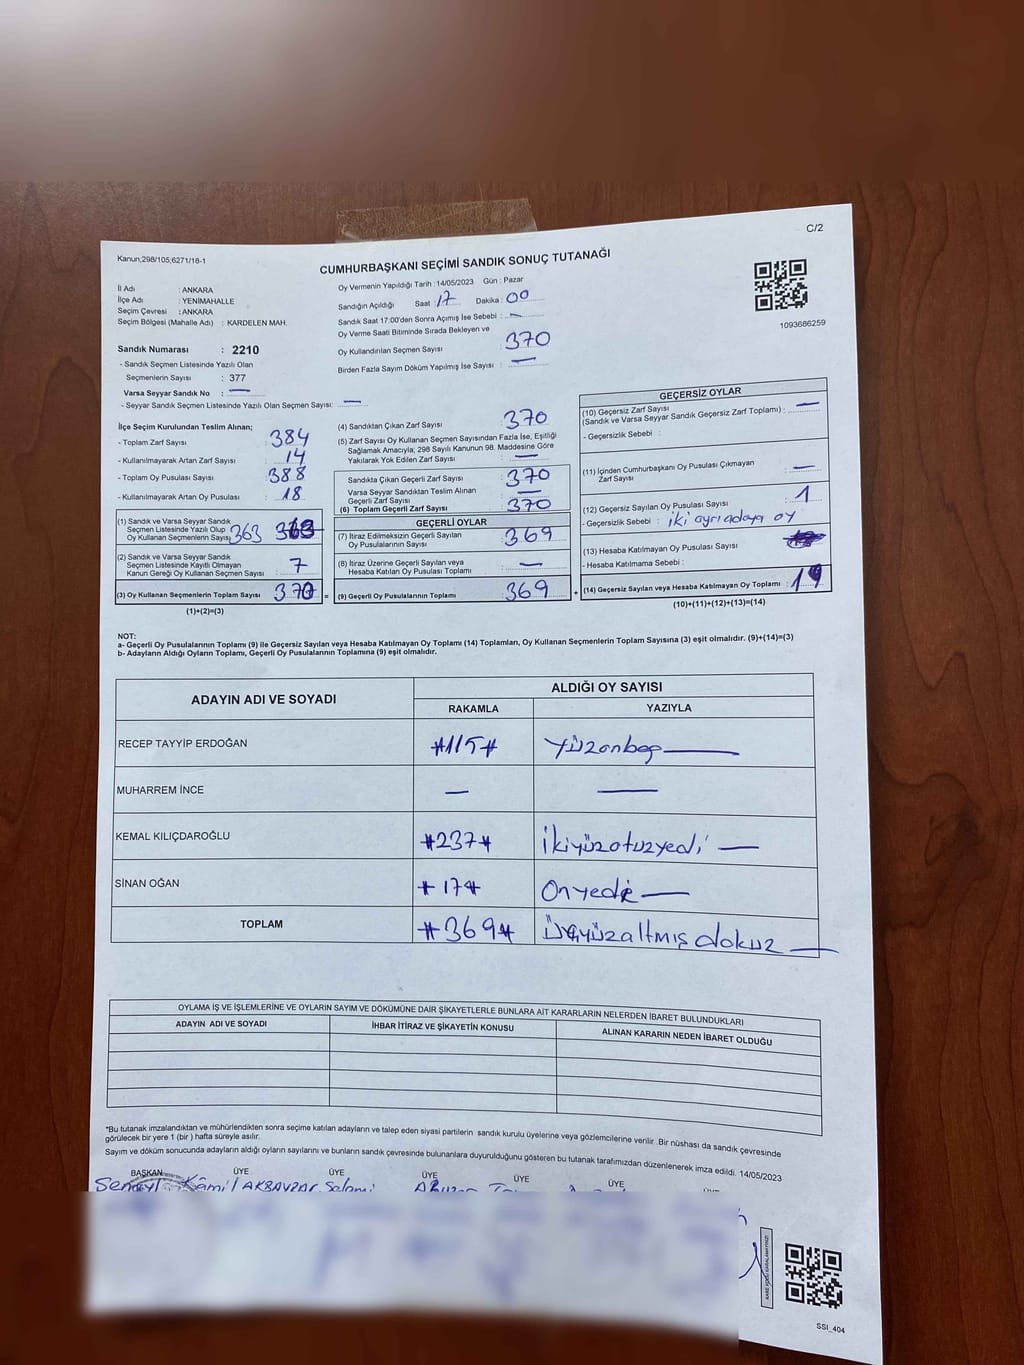 C/2
Kanun;298/105;6271/18-1
CUMHURBAŞKANI SEÇİMİ SANDIK SONUÇ TUTANAĞI
İl Adı : ANKARA
İlçe Adı : YENİMAHALLE
Seçim Çevresi : ANKARA
Seçim Bölgesi (Mahalle Adı) : KARDELEN MAH.
Sandık Numarası : 2210
- Sandık Seçmen Listesinde Yazılı Olan
Seçmenlerin Sayısı : 377
Varsa Seyyar Sandık No : —
- Seyyar Sandık Seçmen Listesinde Yazılı Olan Seçmen Sayısı: —
Oy Vermenin Yapıldığı Tarih : 14/05/2023 Gün : Pazar
Sandığın Açıldığı Saat : 17 Dakika : 00
Sandık Saat 17:00'den Sonra Açımış İse Sebebi : —
Oy Verme Saati Bitiminde Sırada Bekleyen ve
Oy Kullandırılan Seçmen Sayısı : 370
Birden Fazla Sayım Döküm Yapılmış İse Sayısı : —
1093686259
İlçe Seçim Kurulundan Teslim Alınan;
- Toplam Zarf Sayısı : 384
- Kullanılmayarak Artan Zarf Sayısı : 14
- Toplam Oy Pusulası Sayısı : 388
- Kullanılmayarak Artan Oy Pusulası : 18
(1) Sandık ve Varsa Seyyar Sandık
Seçmen Listesinde Yazılı Olup
Oy Kullanan Seçmenlerin Sayısı 363 363
(2) Sandık ve Varsa Seyyar Sandık
Seçmen Listesinde Kayıtlı Olmayan
Kanun Gereği Oy Kullanan Seçmen Sayısı : 7
(3) Oy Kullanan Seçmenlerin Toplam Sayısı : 370 =
(1)+(2)=(3)
(4) Sandıktan Çıkan Zarf Sayısı : 370
(5) Zarf Sayısı Oy Kullanan Seçmen Sayısından Fazla İse, Eşitliği
Sağlamak Amacıyla; 298 Sayılı Kanunun 98. Maddesine Göre
Yakılarak Yok Edilen Zarf Sayısı : —
Sandıkta Çıkan Geçerli Zarf Sayısı : 370
Varsa Seyyar Sandıktan Teslim Alınan
Geçerli Zarf Sayısı : —
(6) Toplam Geçerli Zarf Sayısı : 370
GEÇERLİ OYLAR
(7) İtiraz Edilmeksizin Geçerli Sayılan
Oy Pusulalarının Sayısı : 369
(8) İtiraz Üzerine Geçerli Sayılan veya
Hesaba Katılan Oy Pusulası Toplamı : —
(9) Geçerli Oy Pusulalarının Toplamı : 369 +
GEÇERSİZ OYLAR
(10) Geçersiz Zarf Sayısı
(Sandık ve Varsa Seyyar Sandık Geçersiz Zarf Toplamı) : —
- Geçersizlik Sebebi :
(11) İçinden Cumhurbaşkanı Oy Pusulası Çıkmayan
Zarf Sayısı : —
(12) Geçersiz Sayılan Oy Pusulası Sayısı : 1
- Geçersizlik Sebebi : iki ayrı adaya oy
(13) Hesaba Katılmayan Oy Pusulası Sayısı
- Hesaba Katılmama Sebebi :
(14) Geçersiz Sayılan veya Hesaba Katılmayan Oy Toplamı :
(10)+(11)+(12)+(13)=(14)
NOT:
a- Geçerli Oy Pusulalarının Toplamı (9) ile Geçersiz Sayılan veya Hesaba Katılmayan Oy Toplamı (14) Toplamları, Oy Kullanan Seçmenlerin Toplam Sayısına (3) eşit olmalıdır. (9)+(14)=(3)
b- Adayların Aldığı Oyların Toplamı, Geçerli Oy Pusulalarının Toplamına (9) eşit olmalıdır.
ADAYIN ADI VE SOYADI
ALDIĞI OY SAYISI
RAKAMLA YAZIYLA
RECEP TAYYİP ERDOĞAN #115# Yüzonbeş —
MUHARREM İNCE — —
KEMAL KILIÇDAROĞLU #237# İkiyüzotuzyedi —
SİNAN OĞAN #17# Onyedi —
TOPLAM #369# Üçyüzaltmışdokuz —
OYLAMA İŞ VE İŞLEMLERİNE VE OYLARIN SAYIM VE DÖKÜMÜNE DAİR ŞİKAYETLERLE BUNLARA AİT KARARLARIN NELERDEN İBARET BULUNDUKLARI
ADAYIN ADI VE SOYADI İHBAR İTİRAZ VE ŞİKAYETİN KONUSU ALINAN KARARIN NEDEN İBARET OLDUĞU
*Bu tutanak imzalandıktan ve mühürlendikten sonra seçime katılan adayların ve talep eden siyasi partilerin sandık kurulu üyelerine veya gözlemcilerine verilir. Bir nüshası da sandık çevresinde
görülecek bir yere 1 (bir ) hafta süreyle asılır.
Sayım ve döküm sonucunda adayların aldığı oyların sayılarını ve bunların sandık çevresinde bulunanlara duyurulduğunu gösteren bu tutanak tarafımızdan düzenlenerek imza edildi. 14/05/2023
BAŞKAN ÜYE ÜYE ÜYE ÜYE ÜYE
Kâmil Selami
SSI_404